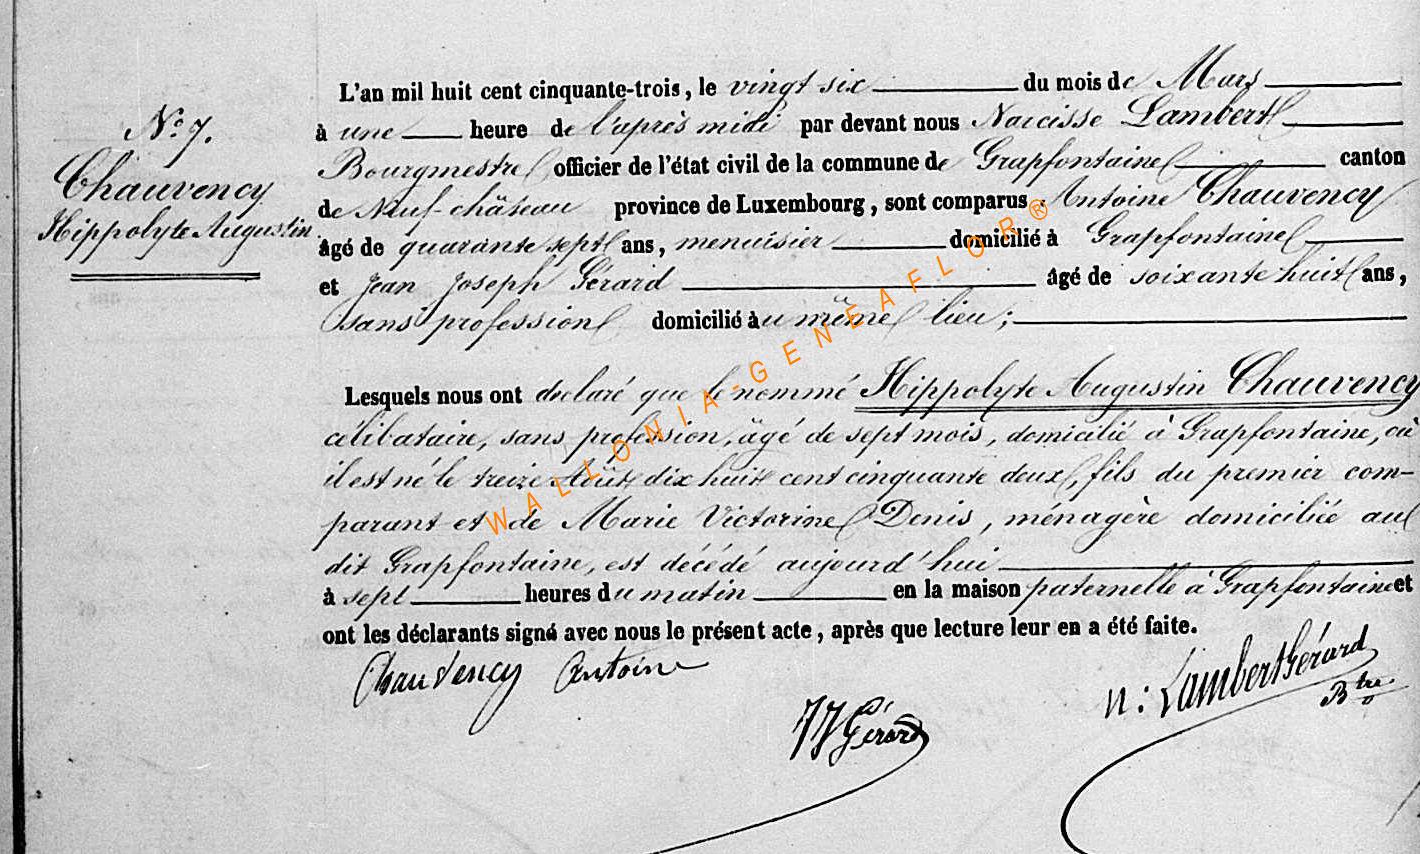 N.º 7.
Chauvency
Hippolyte Augustin
L'an mil huit cent cinquante-trois, le vingt six du mois de Mars
à une heure de l'après midi par devant nous Narcisse Lambert
Bourgmestre officier de l'état civil de la commune de Grapfontaine canton
de Neuf-château province de Luxembourg, sont comparus Antoine Chauvency
âgé de quarante sept ans, menuisier domicilié à Grapfontaine
et Jean Joseph Gérard âgé de soixante huit ans,
sans profession domicilié au même lieu;
Lesquels nous ont déclaré que le nommé Hippolyte Augustin Chauvency
célibataire, sans profession, âgé de sept mois, domicilié à Grapfontaine, où
il est né le treize Août dix huit cent cinquante deux, fils du premier com-
parant et de Marie Victorine Denis, ménagère domicilié au
dit Grapfontaine, est décédé aujourd'hui
à sept heures du matin en la maison paternelle à Grapfontaine et
ont les déclarants signé avec nous le présent acte, après que lecture leur en a été faite.
Chauvency Antoine
JJ Gérard
N: Lambert Gérard
Btre
WALLONIA-GENEAFLOR®